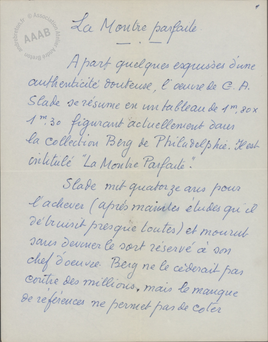 AAAB
La Montre parfaite
A part quelques esquisses d'une
authenticité douteuse, l'oeuvre de C. A.
Slade se résume en un tableau de 1m.80 x
1m.30 figurant actuellement dans
la collection Berg de Philadelphie. Il est
intitulé "La Montre Parfaite".
Slade mit quatorze ans pour
l'achever (après maintes études qu'il
détruisit presque toutes) et mourut
sans deviner le sort réservé à son
chef d'oeuvre. Berg ne le céderait pas
contre des millions, mais le manque
de références ne permet pas de coter